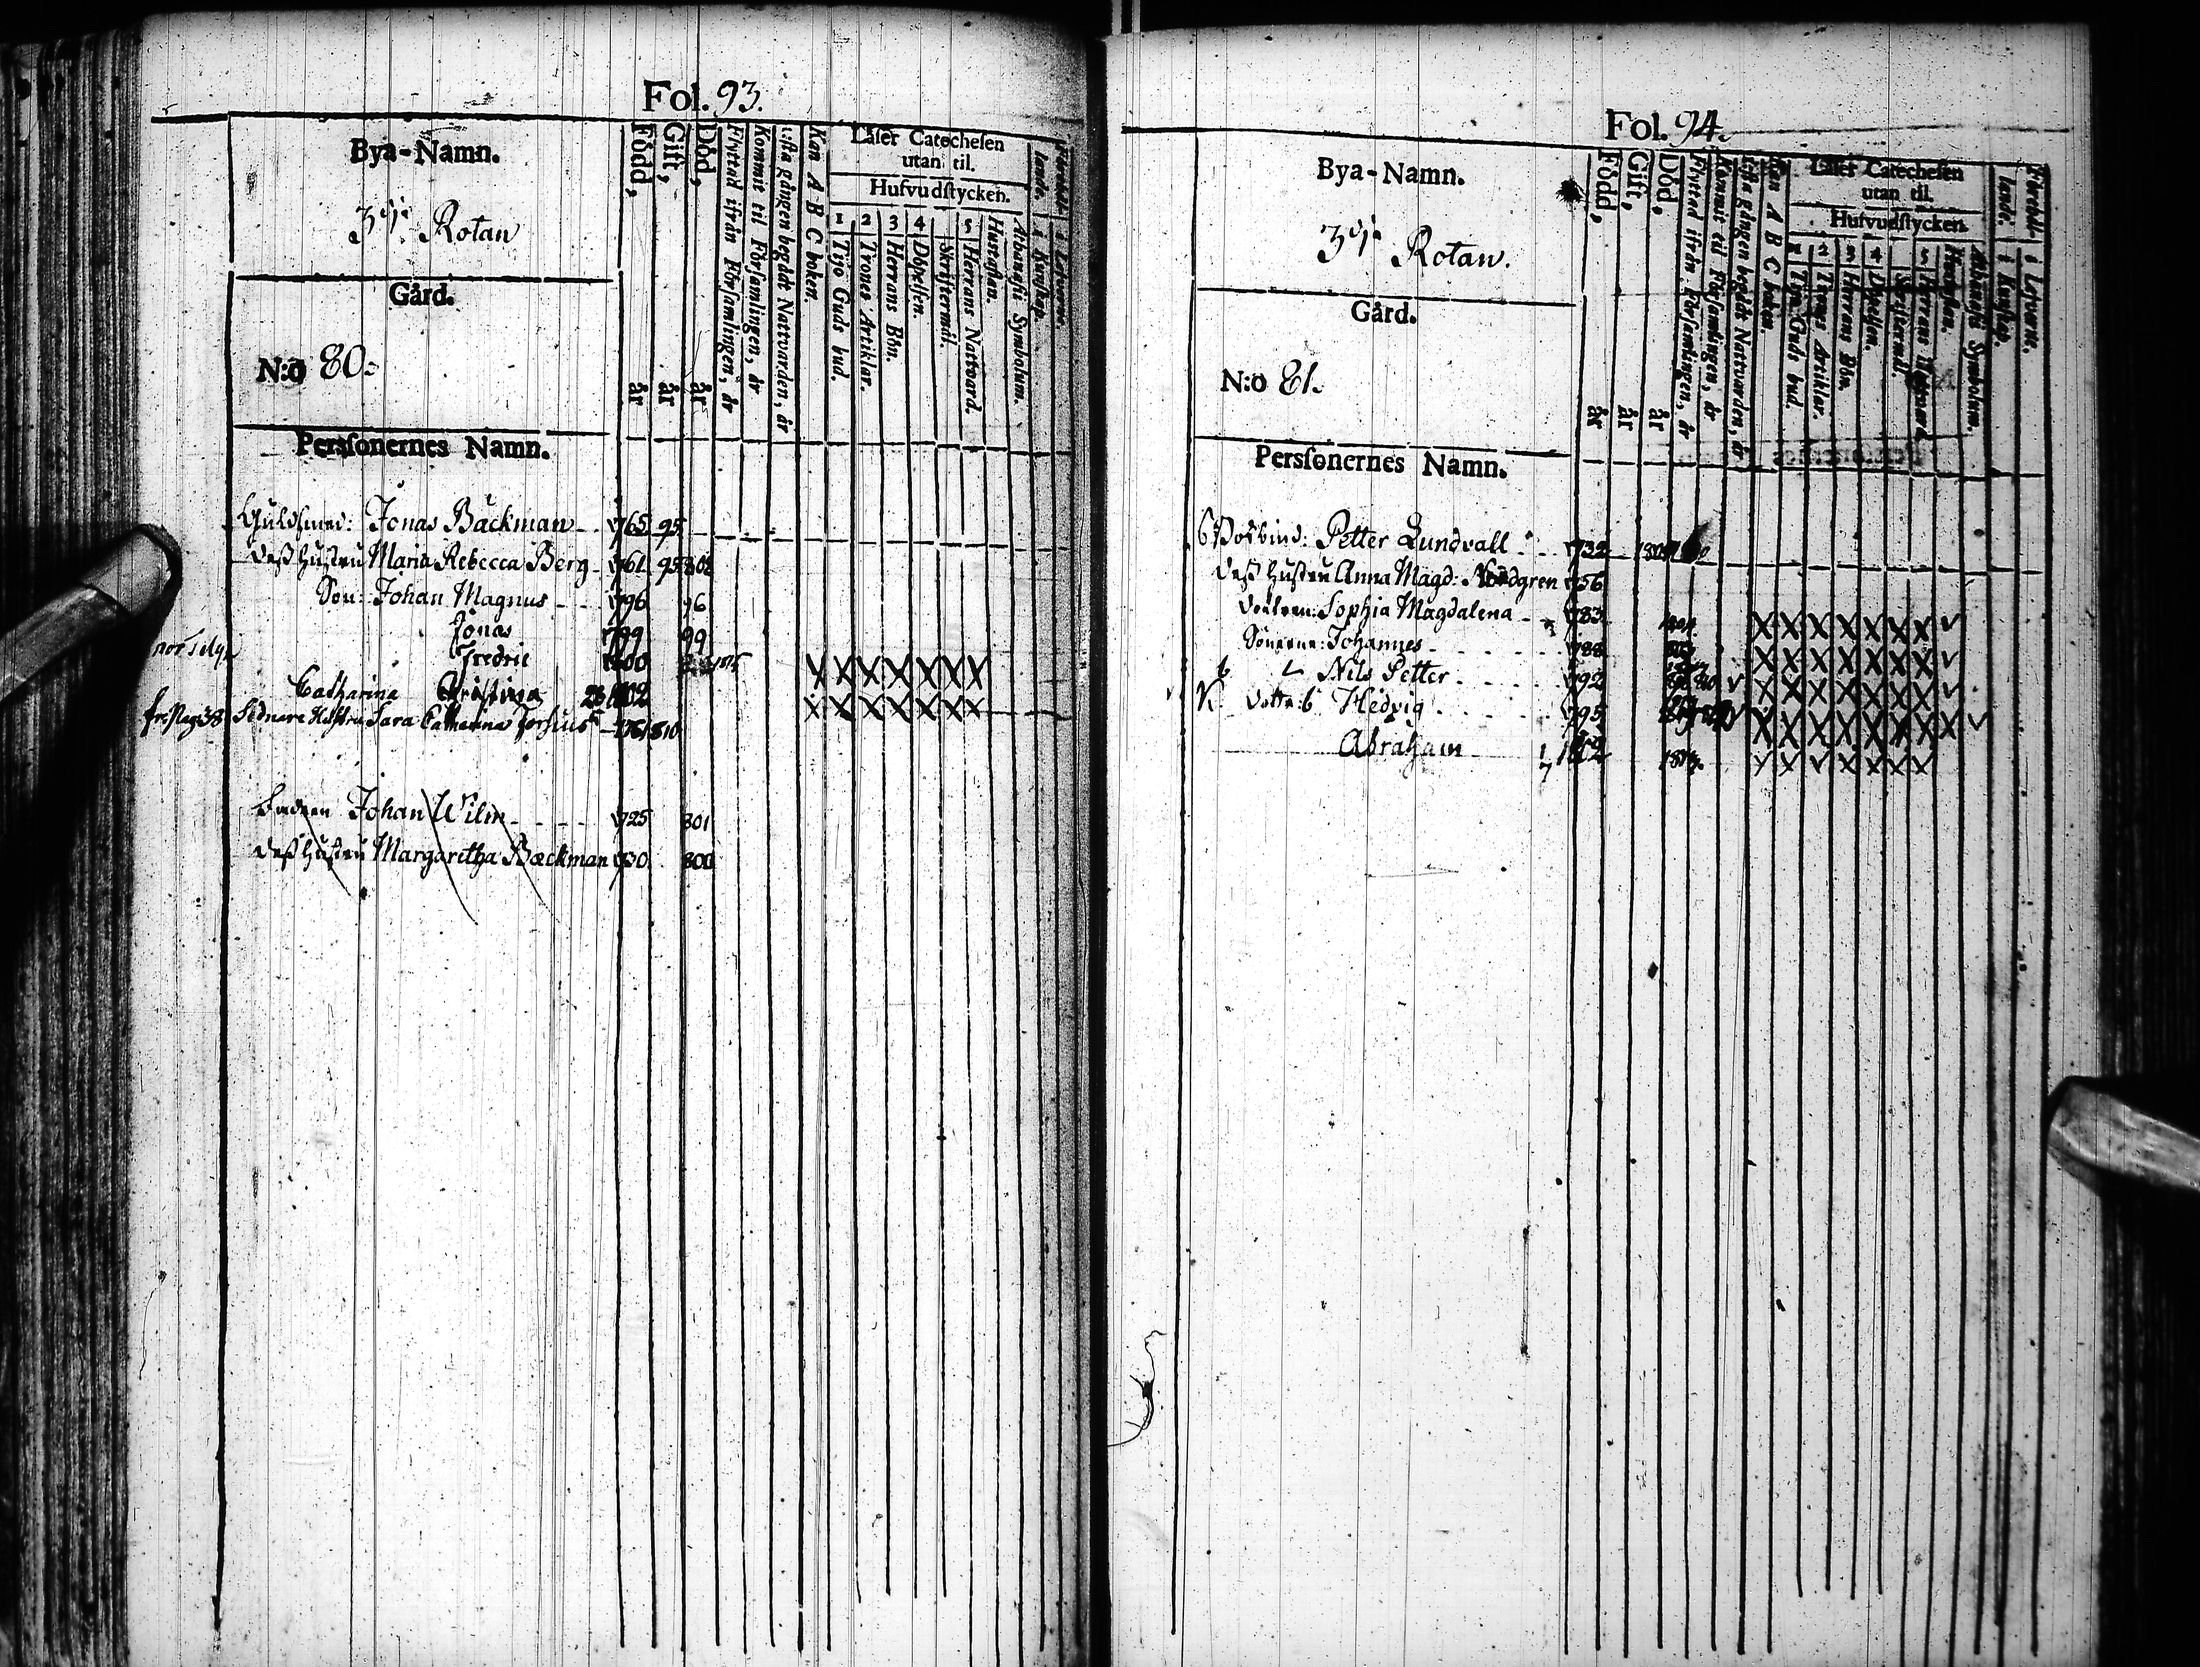 Fol. 93.
Bya-Namn.
3dje Rotan
Gård.
N:o 80.
Persſonernes Namn.
Född, år
Gift, år
Död, år
Flyttad ifrån Förſamlingen, år
Kommit til Förſamlingen, år
:ſta gången begådt Nattvarden, år
Kan A B C boken.
Läſer Catecheſen
utan til.
Hufvudſtycken.
1 2 3 4 5
Tijo Guds bud.
Trones Artiklar.
Herrans Bön.
Döpelſen.
Skriftermål.
Herrans Nattvard.
Huſtaflan.
Athanaſii Symbolum.
Förehål-
lande.
i Kunſkap.
i Lefverne.
Guldſmed: Jonas Bäckman 1765 95
Deß Huſtru Maria Rebecca Berg 1761 95 802
Son: Johan Magnus 1796 96
Jonas 1799 99
Fredric 1800
Catharina Chriſtina 1802
Sednare Huſtru Sara Catharina 176 1810
Fadren Johan Wilm 1725 801
Deß Huſtru Margaretha Bæckman 1730 800
Fol. 94.
Bya-Namn.
3dje Rotan.
Gård.
N:o 81.
Persſonernes Namn.
Född, år
Gift, år
Död, år
Flyttad ifrån Förſamlingen, år
Kommit til Förſamlingen, år
:ſta gången begådt Nattvarden, år
Kan A B C boken.
Läſer Catecheſen
utan til.
Hufvudſtycken.
1 2 3 4 5
Tijo Guds bud.
Trones Artiklar.
Herrans Bön.
Döpelſen.
Skriftermål.
Herrans Nattvard.
Huſtaflan.
Athanaſii Symbolum.
Förehål-
lande.
i Kunſkap.
i Lefverne.
Petter Lundvall 1732
Deß Huſtru Anna Magd: Nordgren 1756
Dottren: Sophia Magdalena 1783
Sönerne: Johannes 1788
Nils Petter 1792
Hedvig 1795
Abraham